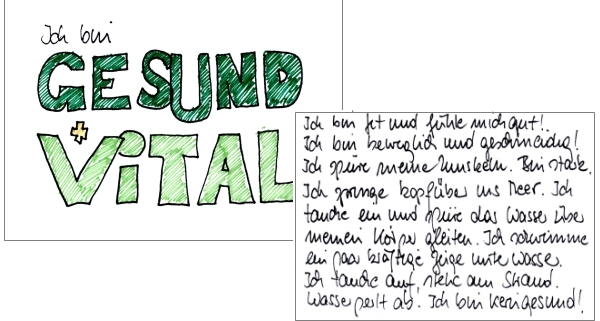 Ich bin
GESUND
+
ViTAL
Ich bin fit und fühle mich gut!
Ich bin beweglich und geschmeidig!
Ich spüre meine Muskeln. Bin stark.
Ich springe kopfüber ins Meer. Ich
tauche ein und spüre das Wasser über
meinen Körper gleiten. Ich schwimme
ein paar kräftige Züge unter Wasser.
Ich tauche auf, stehe am Strand.
Wasser perlt ab. Ich bin kerngesund!